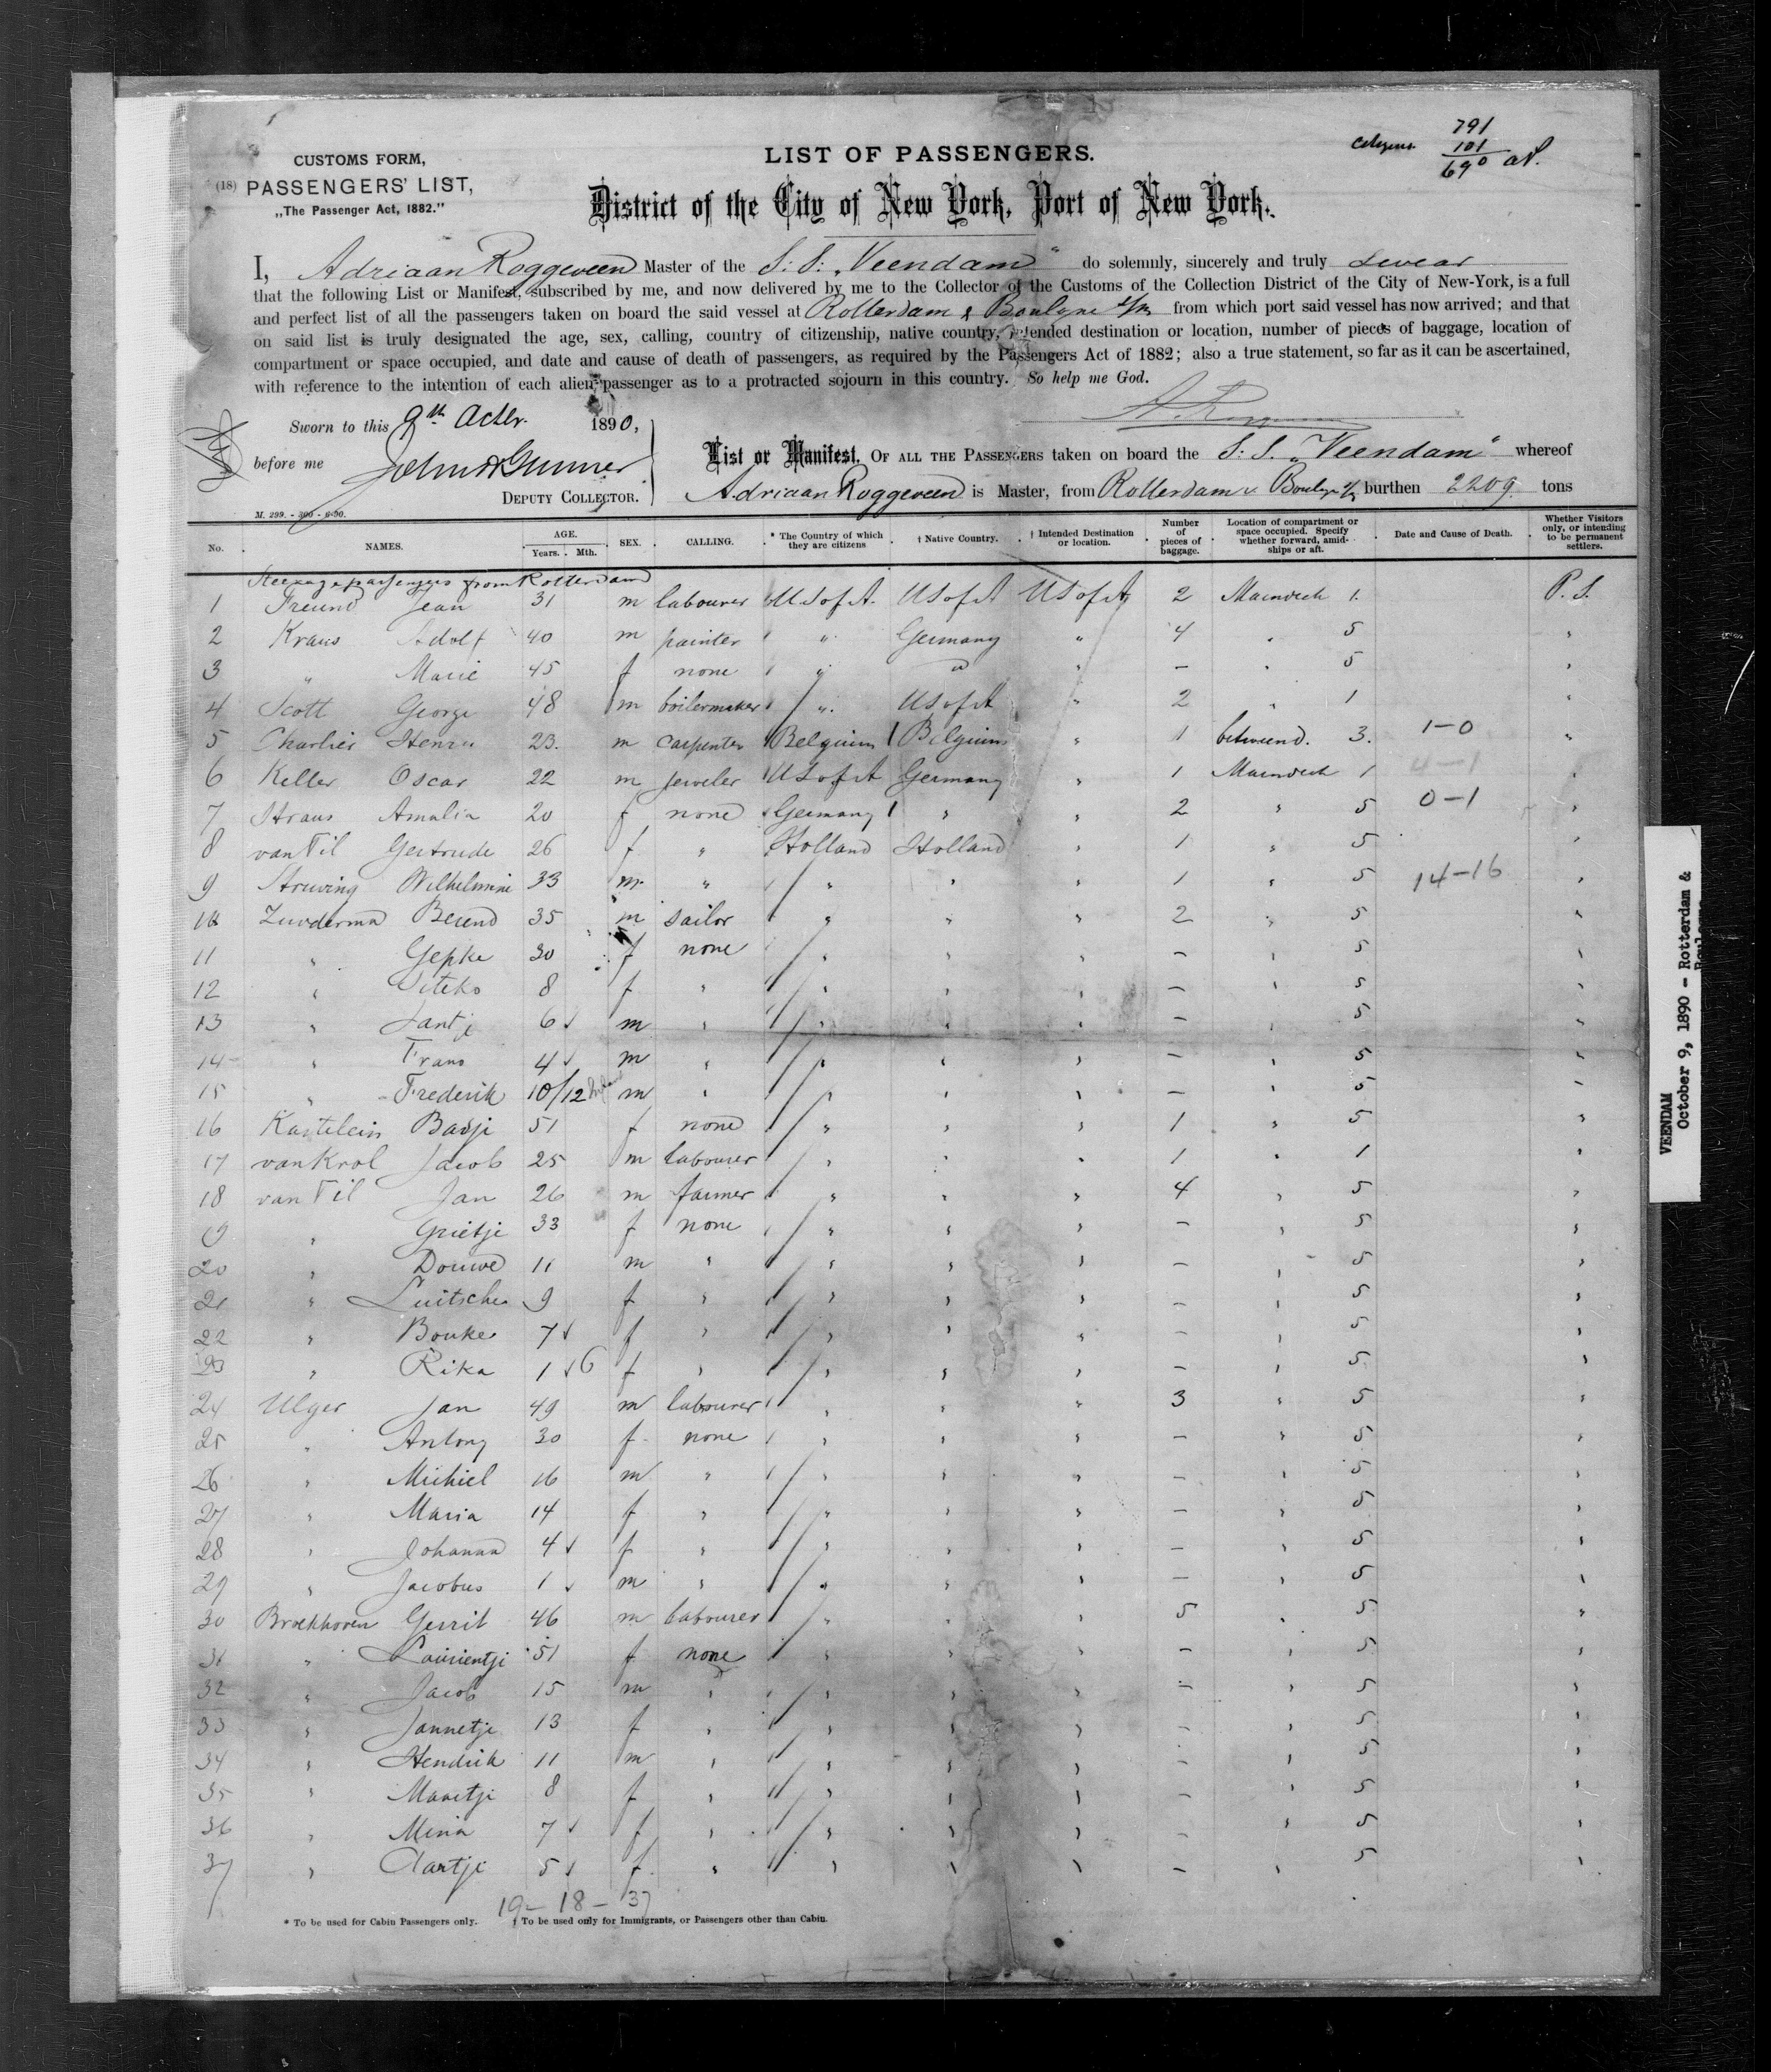 CUSTOMS FORM,
(18) PASSENGERS' LIST,
„The Passenger Act, 1882."
LIST OF PASSENGERS.
791
101
690
District of the City of New York, Port of New York.
I, Adriaan Roggeveen Master of the S. S. „Veendam" do solemnly, sincerely and truly swear
that the following List or Manifest, subscribed by me, and now delivered by me to the Collector of the Customs of the Collection District of the City of New-York, is a full
and perfect list of all the passengers taken on board the said vessel at Rotterdam & from which port said vessel has now arrived; and that
on said list is truly designated the age, sex, calling, country of citizenship, native country, intended destination or location, number of pieces of baggage, location of
compartment or space occupied, and date and cause of death of passengers, as required by the Passengers Act of 1882; also a true statement, so far as it can be ascertained,
with reference to the intention of each alien passenger as to a protracted sojourn in this country. So help me God.
Sworn to this 9th 1890,
before me
DEPUTY COLLECTOR.
List or Manifest, OF ALL THE PASSENGERS taken on board the S. S. „Veendam" whereof
Adriaan Roggeveen is Master, from Rotterdam burthen 2209 tons
M. 299. - 300 - 6-90.
No. NAMES. AGE. Years. Mth. SEX. CALLING. * The Country of which they are citizens † Native Country. † Intended Destination or location. Number of pieces of baggage. Location of compartment or space occupied. Specify whether forward, amidships or aft. Date and Cause of Death. Whether Visitors only, or intending to be permanent settlers.
Steerage passengers from Rotterdam
1 Freund Jean 31 m labourer U S of A. U S of A U S of A 2 Maindeck 1. P. S.
2 Kraus Adolf 40 m painter " Germany " 4 " 5 "
3 " Marie 45 f none " " " — " 5 "
4 Scott George 48 m boilermaker " U S of A " 2 " 1 "
5 Charlier Henri 23. m carpenter Belgium Belgium " 1 betweend. 3. 1-0 "
6 Keller Oscar 22 m jeweler U S of A Germany " 1 Maindeck 1 4-1 "
7 Straus Amalia 20 f none Germany " " 2 " 5 0-1 "
8 van Til Gertrude 26 f " Holland Holland " 1 " 5 "
9 Struving Wilhelmine 33 m " " " " 1 " 5 14-16 "
10 Berend 35 m sailor " " " 2 " 5 "
11 " Gepke 30 f none " " " — " 5 "
12 " 8 f " " " " — " 5 "
13 " Jantje 6 m " " " " — " 5 "
14 " Frans 4 m " " " " — " 5 "
15 " Frederik 10/12 m " " " " — " 5 "
16 Kastelein 51 f none " " " 1 " 5 "
17 van Krol Jacob 25 m labourer " " " 1 " 1 "
18 van Til Jan 26 m farmer " " " 4 " 5 "
19 " Grietje 33 f none " " " — " 5 "
20 " Douwe 11 m " " " " — " 5 "
21 " Luitsche 9 f " " " " — " 5 "
22 " Bouke 7 f " " " " — " 5 "
23 " Rika 1 6 f " " " " — " 5 "
24 Ulger Jan 49 m labourer " " " 3 " 5 "
25 " Antony 30 f none " " " — " 5 "
26 " Michiel 16 m " " " " — " 5 "
27 " Maria 14 f " " " " — " 5 "
28 " Johanna 4 f " " " " — " 5 "
29 " Jacobus 1 m " " " " — " 5 "
30 Broekhoven Gerrit 46 m labourer " " " 5 " 5 "
31 " 51 f none " " " — " 5 "
32 " Jacob 15 m " " " " — " 5 "
33 " Jannetje 13 f " " " " — " 5 "
34 " Hendrik 11 m " " " " — " 5 "
35 " Maretje 8 f " " " " — " 5 "
36 " Mina 7 f " " " " — " 5 "
37 " Aartje 5 f " " " " — " 5 "
19 - 18 - 37
* To be used for Cabin Passengers only. † To be used only for Immigrants, or Passengers other than Cabin.
VEENDAM
October 9, 1890 - Rotterdam &